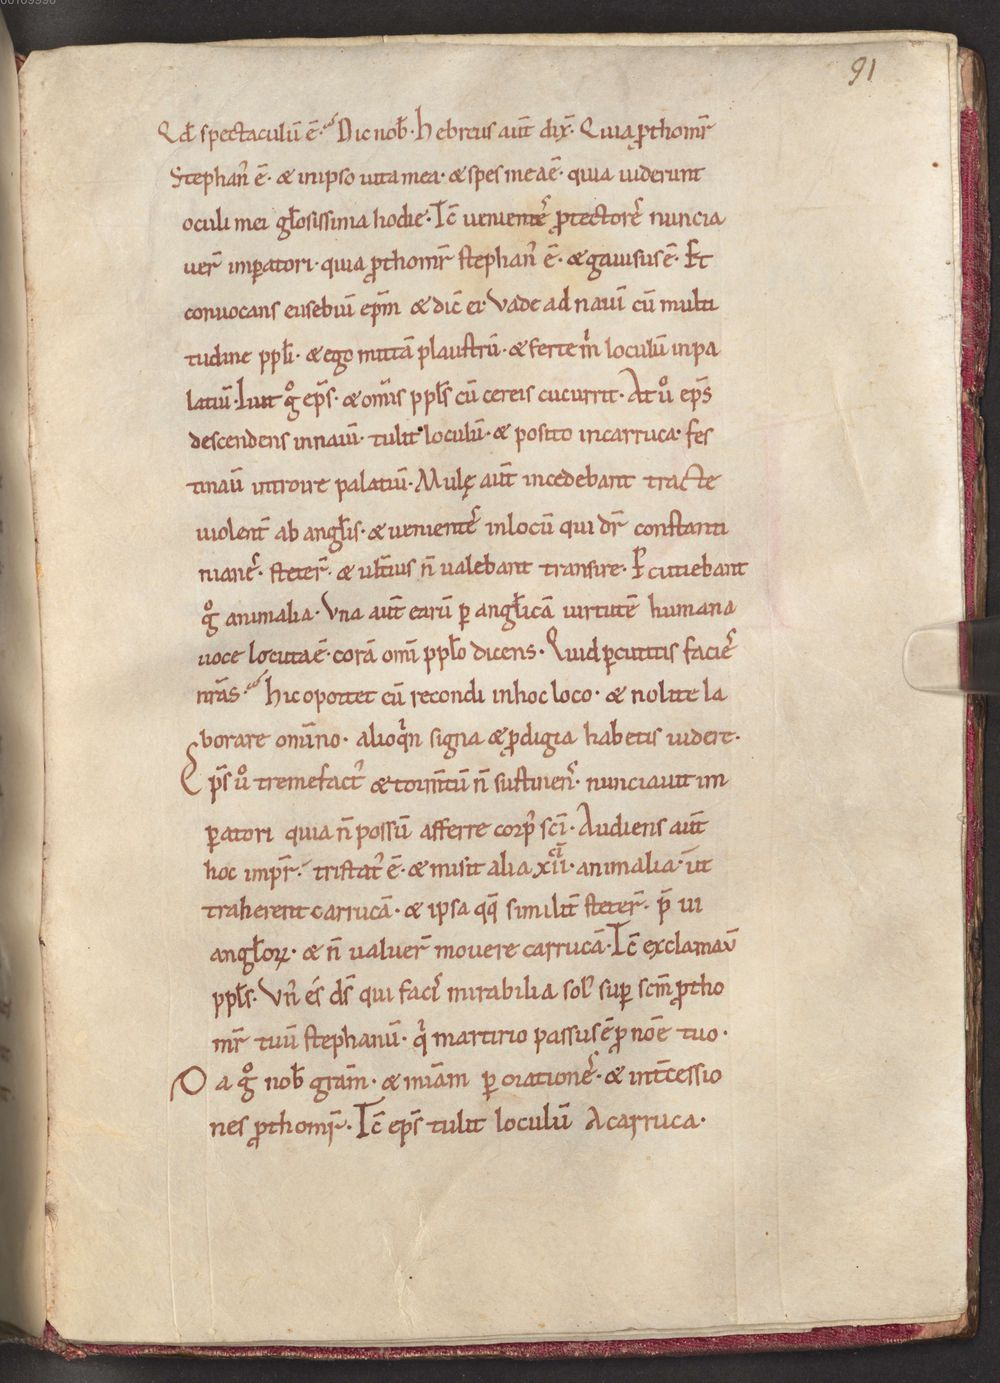 00109996
91
Qd̄ spectaculū ē. Dic nob̄. hebreus aūt dix̄. Quia ꝓthomr̄
Stephan᷒ ē. & in ipso uita mea. & spes mea ē. quia uiderunt
oculi mei gl̄osissima hodie. Tc̄ uenientē ꝓtectorē nuncia
uer̄ imꝑatori. quia ꝓthomr̄ stephan᷒ ē. & gauisus ē. Et
conuocans eusebiū epm̄ & dic̄ ei. Vade ad nauī cū multi
tudine ppl̄i. & ego mittā plaustrū. & ferte m̄ loculū in pa
latiū. Iuit g̊ ep̄s. & om̄is ppl̄s cū cereis cucurrit. At ů ep̄s
descendens in nauī. tulit loculū. & posito in carruca. fes
tinaū introire palatiū. Mulę aūt incedebant tracte
uiolent̄ ab angl̄is. & uenientē in locū qui dr̄ constanti
nianē. steter̄. & ult̄ius n̄ ualebant transire. Ꝑcutiebant
g̊ animalia. Vna aūt earū ꝑ angl̄icā uirtutē humana
uoce locuta ē. corā omī ppl̄o dicens. Quid ꝑcutitis faciē
nr̄as. hic oportet eū recondi in hoc loco. & nolite la
borare omīno. alioq̇n signa & ꝓdigia habetis uidere.
Ep̄s ů tremefact᷒ & torm̄tū n̄ sustinen᷒. nunciauit im
ꝑatori quia n̄ possū afferre corp᷒ sc̄i. Audiens aūt
hoc impr̄. tristat᷒ ē. & misit alia xii. animalia. ūt
traherent carrucā. & ipsa qq̄ similit̄ steter̄. p̄ ui
angl̄oꝝ. & n̄ ualuer̄ mouere carrucā. Tc̄ exclamaū
ppl̄s. Vn᷒ es ds̄ qui faci᷒ mirabilia sol᷒ suꝑ scm̄ ꝓtho
mr̄ tuū stephanū. q̇ martirio passus ē ꝓ noē tuo.
Da g̊ nob̄ gram̄. & miam̄ ꝑ orationē. & int̄cessio
nes ꝓthomr̄. Tc̄ ep̄s tulit loculū A carruca.